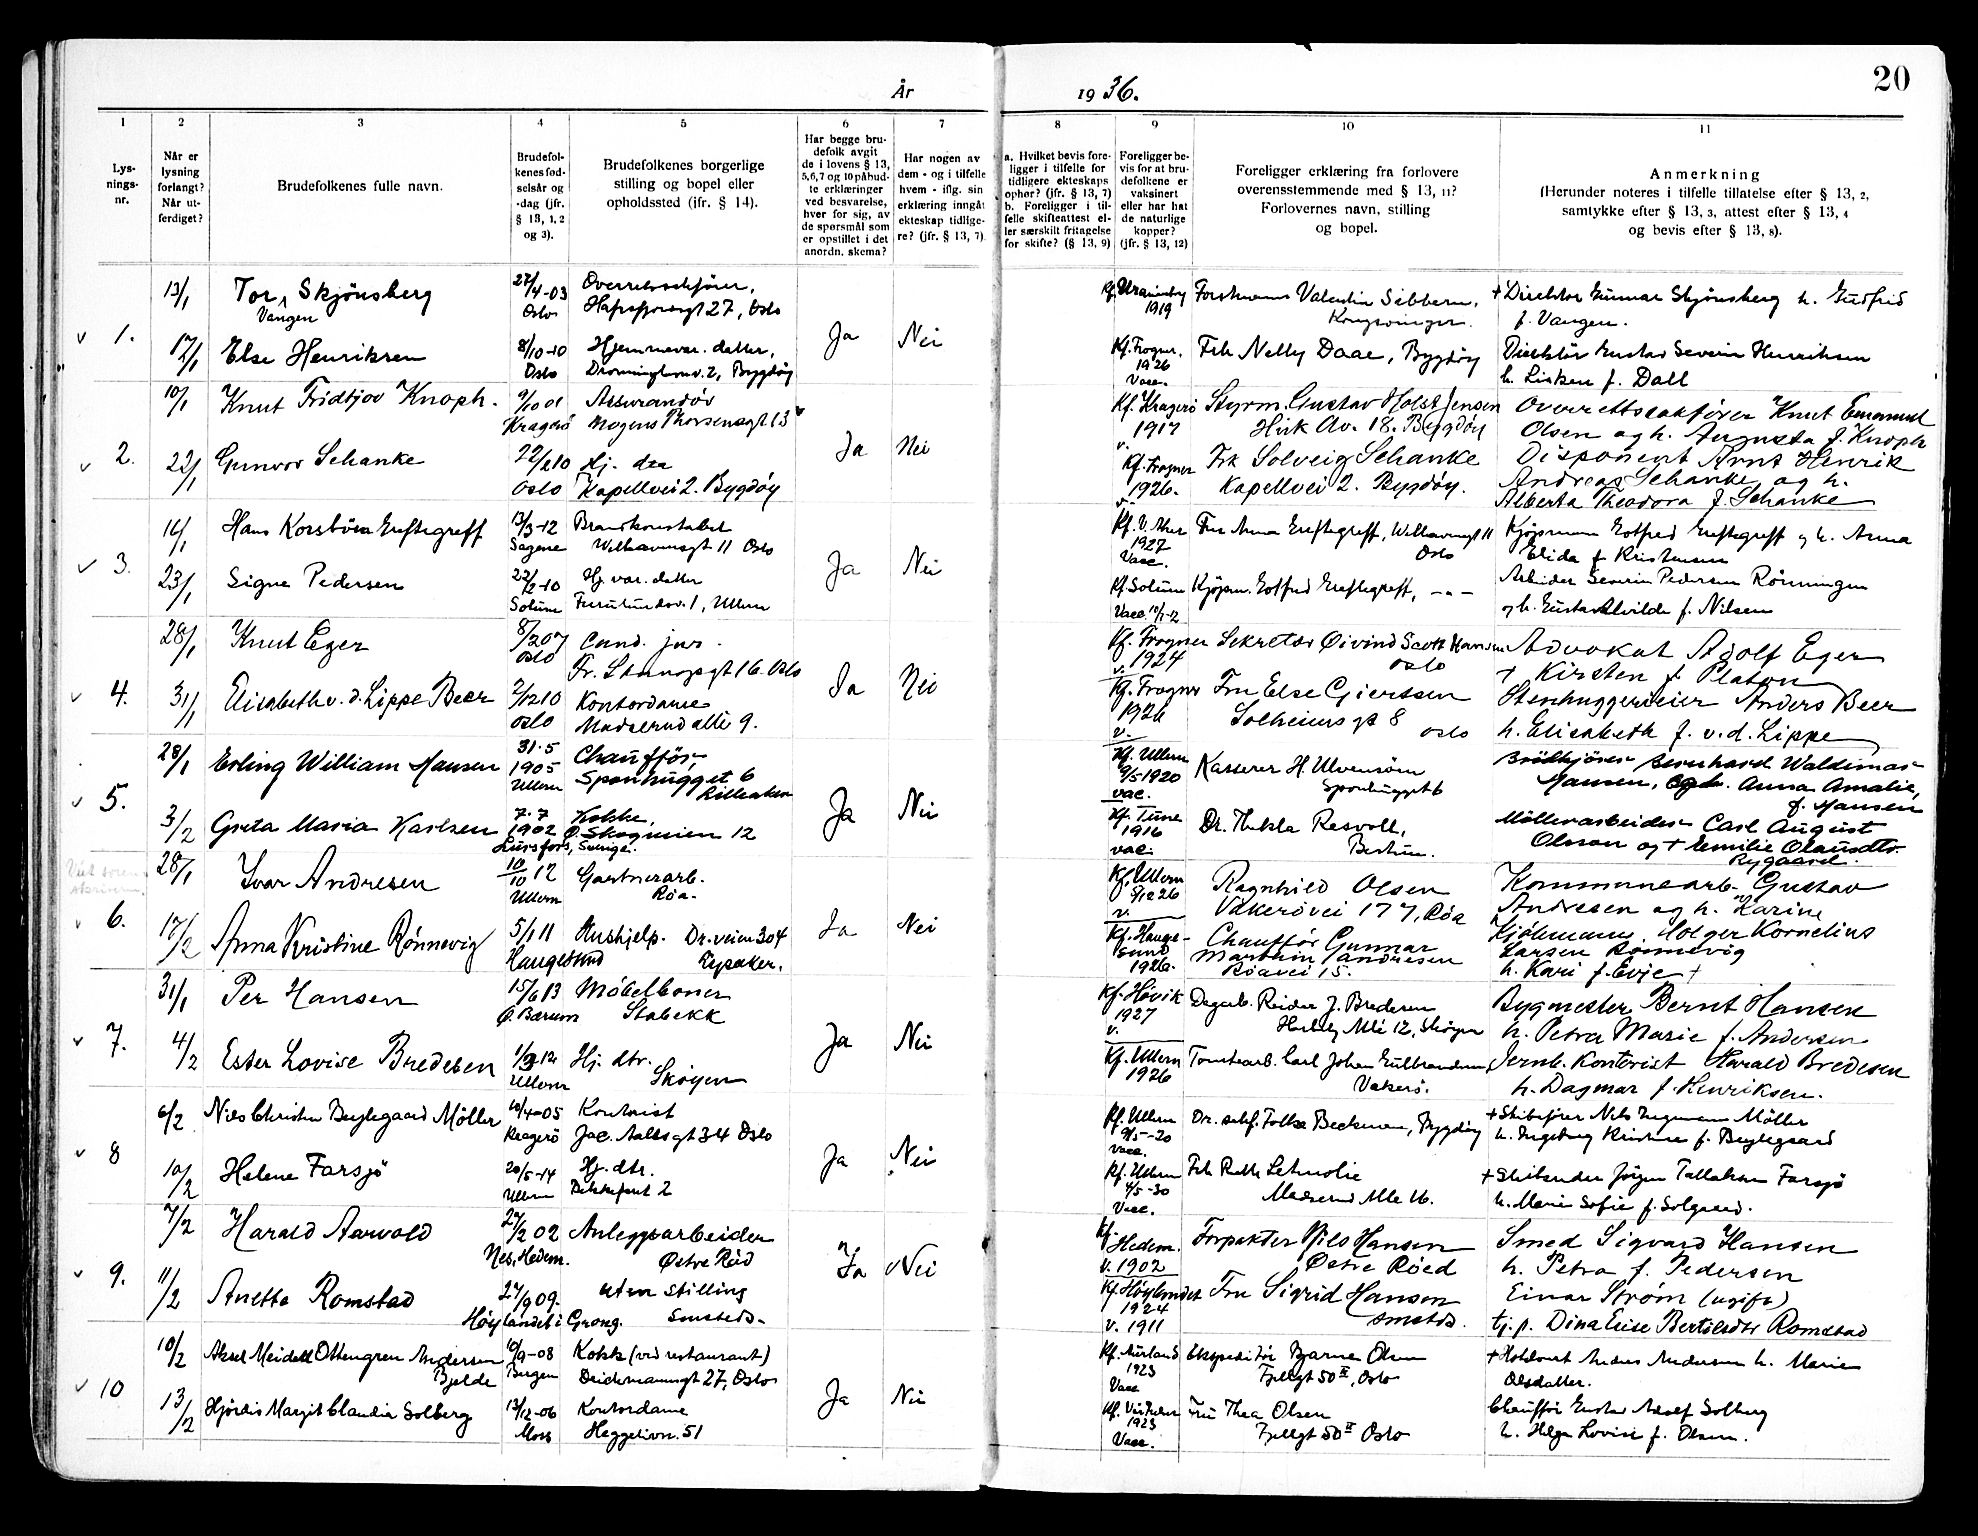 År 1936.
20
1
2
3
4
5
6
7
8
9
10
11
Lys-
nings-
nr.
Når er
lysning
forlangt?
Når ut-
ferdiget?
Brudefolkenes fulle navn.
Brudefol-
kenes fød-
selsår og
-dag (jfr.
§ 13, 1, 2
og 3).
Brudefolkenes borgerlige
stilling og bopel eller
opholdssted (jfr. § 14).
Har begge bru-
defolk avgit
de i lovens § 13,
5, 6, 7 og 10 påbud-
te erklæringer
ved besvarelse,
hver for sig, av
de spørsmål som
er opstillet i det
anordn. skema?
Har nogen av
dem - og i tilfelle
hvem - iflg. sin
erklæring inngåt
ekteskap tidlige-
re? (jfr. § 13, 7).
a. Hvilket bevis fore-
ligger i tilfelle for
tidligere ekteskaps
ophør? (jfr. § 13, 7)
b. Foreligger i til-
felle skifteattest el-
ler særskilt fritagelse
for skifte? (§ 13, 9)
Foreligger be-
vis for at bru-
defolkene er
vaksinert
eller har hat
de naturlige
kopper?
(jfr. § 13, 12)
Foreligger erklæring fra forlovere
overensstemmende med § 13, 11?
Forlovernes navn, stilling
og bopel.
Anmerkning
(Herunder noteres i tilfelle tillatelse efter § 13, 2,
samtykke efter § 13, 3, attest efter § 13, 4
og bevis efter § 13, 8).
1.
13/1
Tor Skjønsberg
Vangen
27/4-03
Oslo
Overrettssakfører,
Hafrsfjordsgt 27, Oslo
Ja
Nei
1919
Forstmann Valentin Sibbern,
Kongsvinger.
+ Direktør Gunnar Skjønsberg h. Gudfrid
f. Vangen.
17/1
Else Henriksen
8/10-10
Oslo
Hjemmevær. datter,
Dronninghavnv. 2, Bygdöy
Kf. Frogner,
1926
Vacc.
Frk Nelly Daae, Bygdöy
Direktör Gustav Severin Henriksen
h. Lisken f. Dall
2.
10/1
Knut Fridtjov Knoph.
9/10 01
Kragerö
Assurandör
Mogens Thorsensgt 13
Ja
Nei
Kf. Kragerö
1917
v.
Styrm. Gustav Holst Jensen
Hirk Av. 18. Bygdöy
Overettssakförer Knut Emanuel
Olsen og h. Augusta f. Knoph
22/1
Gunvor Schanke
22/2 10
Oslo
Hj. dea
Kapellvei 2. Bygdöy
Kf. Frogner
1926.
v.
Frk Solveig Schanke
Kapellvei 2. Bygdöy.
Disponent Arnt Henrik
Andreas Schanke og h.
Alberta Theodora f. Schanke
3.
14/1
Hans Korsböen Greftegreff
13/3-12
Sagene
Brandkonstabel
Welhavensgt 11 Oslo
Ja
Nei
Kf. V. Aker
1927
Vacc.
Fru Anna Greftegreff, Welhavensgt 11
Oslo
Kjöpmann Gotfred Greftegreff og h. Anna
Elida f. Kristensen
23/1
Signe Pedersen
22/2-10
Solum
Hj. vær. datter
Furulundsv. 1, Ullern
Kf. Solum
Vacc. 10/1-12
Kjöpm. Gotfred Greftegreff, -"-
Arbeider Severin Pedersen Rönningen
og h. Gustava Alvilde f. Nilsen
4.
28/1
Knut Eger
8/2 07
Oslo
Cand. jur.
Fr. Stangsgt 16. Oslo
Ja
Nei
Kf. Frogner
1924
v.
Sekretær Öivind Scott Hansen
Oslo
Advokat Adolf Eger
+ Kirsten f. Platou
31/1
Elisabeth v. d. Lippe Beer
2/12 10
Oslo
Kontordame
Madserud allé 9.
Kf. Frogner
1926
v.
Fru Else Gjertssen
Solheimsgt 8 Oslo
Stenhuggerieier Anders Beer
h. Elisabeth f. v. d. Lippe
5.
28/1
Erling William Hansen
31.5
1905
Ullern
Chaufför,
Sponhugget 6
Lilleaker
Ja
Nei
Kf. Ullern
9/5 1920
vac.
Kasserer H. Ulvensöen
Sponhugget 6
Brödkjörer Bernhard Waldemar
Hansen, og h. Anna Amalie,
f. Hansen
3/2
Greta Maria Karlsen
7.7
1902
Kokke,
Ö. Skogveien 12
Sverige.
Kf. Tune
1916
vac.
Dr. Thekla Resvoll,
Bestum.
Möllearbeider Carl August
Olsson og + Emilie Olausdtr.
Rygaard.
6.
28/1
Ivar Andresen
10/10 12
Ullern
Gartnerarb.
Röa.
Ja
Nei
Kf. Ullern
5/12 26
v.
Ragnhild Olsen
Vækerövei 177, Röa
Kommunearb. Gustav
Andresen og h. Karine
17/2
Anna Kristine Rönnevig
5/1 11
Haugesund
Hushjelp. Dr.veien 304
Lysaker.
Kf. Hauge-
sund
1926.
Chaufför Gunnar
Marthin Andresen
Röavei 15.
Kjöbmann Holger Kornelius
Larsen Rönnevig
h. Kari f. Evje +
7.
31/1
Per Hansen
15/6 13
Ö. Bærum
Möbelboner
Stabekk
Ja
Nei
Kf. Hövik
1927
v.
Reidar J. Bredesen
Allé 12, Sköyen
Bygmester Bernt Hansen
h. Petra Marie f. Andersen
4/2
Ester Lovise Bredesen
1/3-12
Ullern
Hj. dtr.
Sköyen
Kf. Ullern
1926
Tomtearb. Carl Johan Gulbrandsen,
Vækerö.
Jernb. Kontorist Harald Bredesen
h. Dagmar f. Henriksen.
8
6/2
Nils Christen Beylegaard Möller
10/4-05
Kragerö
Kontorist
Jac. Aallsgt 34 Oslo
Ja
Nei
Kf. Ullern
9/5-20
Vacc.
Beckman, Bygdöy
+ Skibsförer Nils Ingmann Möller
h. Ingeborg Kristine f. Beylegaard
10/2
Helene Farsjö
20/5-14
Ullern
Hj. dtr.
Bekkefaret 2
Kf. Ullern
4/5-30
Vacc.
Frk Ruth
Madserud Alle 16.
+ Skibsreder Jörgen Tallaksen Farsjö
h. Marie Sofie f. Solgaard.
9.
7/2
Harald Aarvold
27/2 02
Nes, Hedem.
Anleggsarbeider
Østre Röd
Ja
Nei
Kf.
Hedem.
v. 1902
Forpakter Nils Hansen
Østre Röed
Smed Sigvard Hansen
h. Petra f. Pedersen
11/2
Anetta Romstad
27/9 09.
Höylandet i Grong.
uten stilling
Smsteds.
Kf. Höylandet
1924
v. 1911
Fru Sigrid Hansen
smstds.
Einar Strøm (ugift)
tj. p. Dina Elise Bertilsdtr Romstad
10
10/2
Aksel Meidell Ottengren Andersen
Bjelde
10/9-08
Bergen
Kokk (ved restaurant)
Deichmannsgt 27, Oslo
Ja
Nei
Kf. Aurland
1923
Vacc
Ekspeditör Bjarne Olsen
Fjellgt 50 II, Oslo
Anders Andersen h. Marie
Olsdatter.
13/2
Hjördis Margit Claudia Solberg
13/12-06
Moss
Kontordame
Heggeliivn. 51
1923
Vacc.
Fru Thea Olsen
Fjellgt 50 II Oslo
Chaufför Gustav Adolf Solberg
h. Helga Lovise f. Olsen.